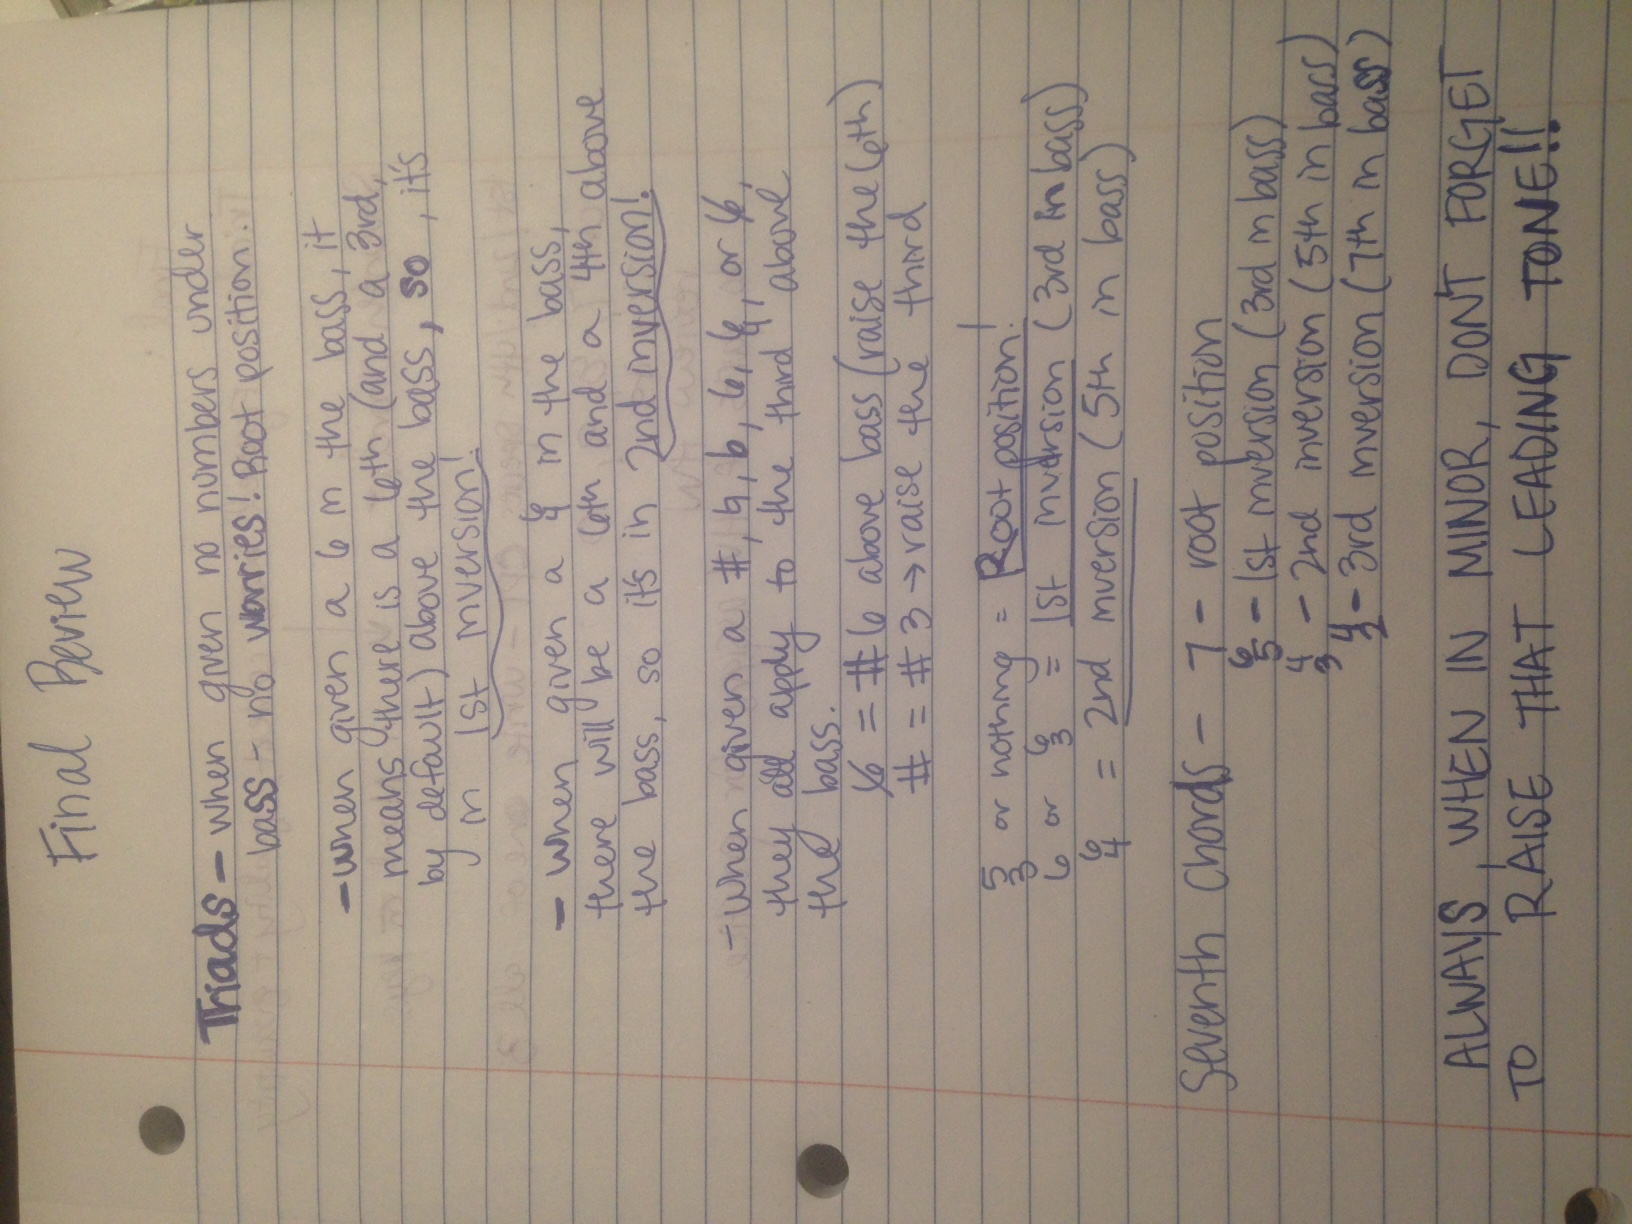 Final Review
Triads - when given no numbers under
bass - no worries! Root position.
- when given a 6 in the bass, it
means there is a 6th (and a 3rd,
by default) above the bass, so, it's
in 1st inversion!
- when given a 6/4 in the bass,
there will be a 6th and a 4th above
the bass, so it's in 2nd inversion!
- when given a #, ♮, b, 6, 6/4, or 6̸,
they all apply to the third above
the bass.
6̸ = #6 above bass (raise the 6th)
# = #3 → raise the third
5/3 or nothing = Root position!
6 or 6/3 = 1st inversion (3rd in bass)
6/4 = 2nd inversion (5th in bass)
Seventh Chords - 7 - root position
6/5 - 1st inversion (3rd in bass)
4/3 - 2nd inversion (5th in bass)
4/2 - 3rd inversion (7th in bass)
ALWAYS, WHEN IN MINOR, DONT FORGET
TO RAISE THAT LEADING TONE!!